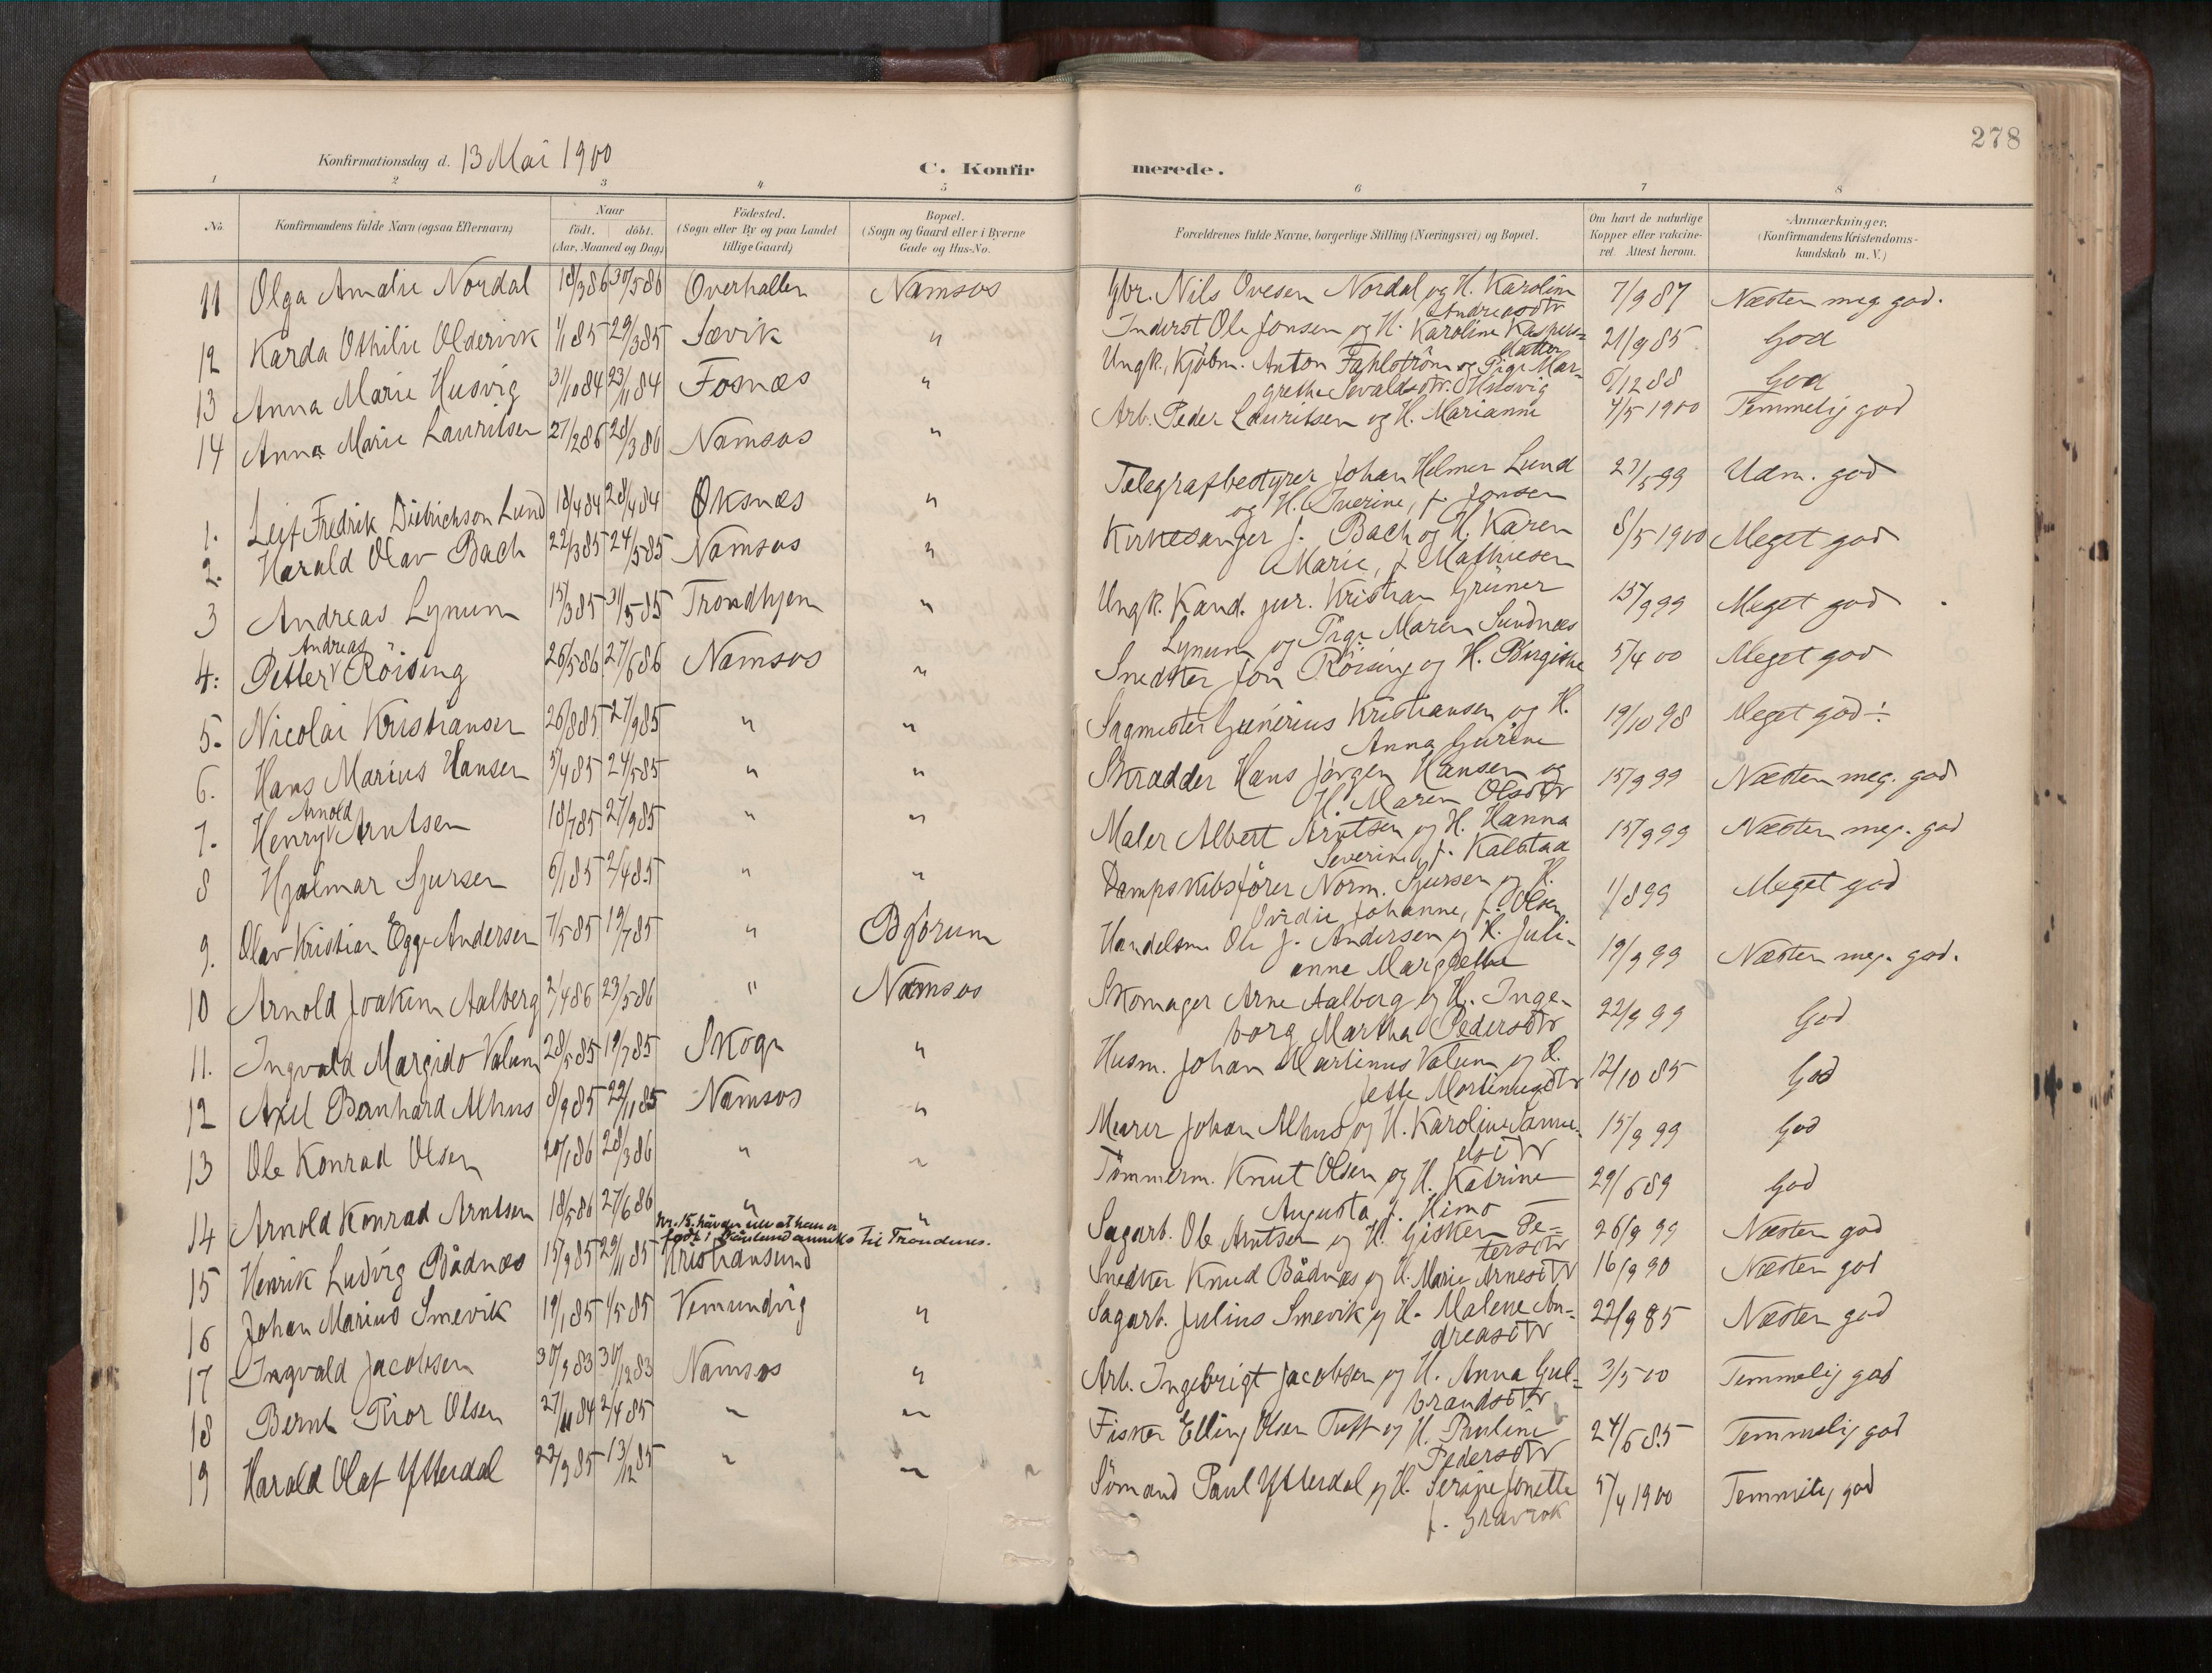 278
Konfirmationsdag d. 13 Mai 1900
C. Konfirmerede.
1 2 3 4 5 6 7 8
No. Konfirmandens fulde Navn (ogsaa Efternavn) Naar födt. döbt. (Aar, Maaned og Dag) Födested. (Sogn eller By og paa Landet tillige Gaard) Bopæl. (Sogn og Gaard eller i Byerne Gade og Hus-No. Forældrenes fulde Navne, borgerlige Stilling (Næringsvei) og Bopæl. Om havt de naturlige Kopper eller vakcineret. Attest herom. Anmærkninger. (Konfirmandens Kristendomskundskab m. V.)
11 Olga Amalie Nordal 18/3 86 30/5 86 Overhallen Namsos Gbr. Nils Ovesen Nordal og H. Karolin Andreasdtr 7/9 87 Næsten meg. god.
12 Karda Othilie Oldervik 1/1 85 29/3 85 Sævik " Inderst Ole Jonsen og H. Karoline Kaspersdatter 21/9 85 God
13 Anna Marie Husvig 31/10 84 23/11 84 Fosnæs " Ungk. Kjöbm. Anton Fahlström og Pige Margrethe Sevaldsdtr. Husvig 6/12 88 God
14 Anna Marie Lauritsen 27/2 86 28/3 86 Namsos " Arb. Peder Lauritsen og H. Marianne 4/5 1900 Temmelig god
1. Leif Fredrik Dietrichson Lund 18/4 84 28/4 84 Øksnæs " Telegrafbestyrer Johan Helmer Lund og H. Iverine, f. Jonsen 27/5 99 Udm. god
2. Harald Olav Bach 22/3 85 24/5 85 Namsos " Kirkesanger J. Bach og H. Karen Marie, f. Mathiesen 8/5 1900 Meget god
3 Andreas Lynum 15/3 85 31/5 85 Trondhjem " Ungk. Kand. jur. Kristian Grüner Lynum og Pige Maren Sundnæs 15/9 99 Meget god
4. Petter Andreas Röising 26/5 86 27/6 86 Namsos " Snedker Jon Röising og H. Birgitte 5/4 00 Meget god
5. Nicolai Kristiansen 26/8 85 27/9 85 " " Sagmester Gunerius Kristiansen og H. Anna Gurine 19/10 98 Meget god ÷
6. Hans Marius Hansen 5/4 85 24/5 85 " " Skrædder Hans Jørgen Hansen og H. Maren Olsdtr 15/9 99 Næsten meg. god
7. Henry Arnold Arntsen 18/7 85 27/9 85 " " Maler Albert Arntsen og H. Hanna Severine f. Kalstad 15/9 99 Næsten meg. god
8 Hjalmar Sjursen 6/1 85 2/4 85 " " Dampskibsförer Norm. Sjursen og H. Ovidie Johanne, f. Olsen 1/8 99 Meget god
9. Olav Kristian Egge Andersen 7/5 85 19/7 85 " Bjørum Handelsm. Ole J. Andersen og H. Julianne Margrethe 19/9 99 Næsten meg. god.
10 Arnold Joakim Aalberg 2/4 86 23/5 86 " Namsos Skomager Arne Aalberg og H. Ingeborg Martha Pedersdtr 22/9 99 God
11. Ingvald Margido Valum 28/5 85 19/7 85 Skogn " Husm. Johan Martinus Valum og H. Jette Mortinusdtr 12/10 85 God
12 Axel Bernhard Alhus 8/9 85 22/11 85 Namsos " Murer Johan Alhus og H. Karoline Samuelsdtr 15/9 99 God
13 Ole Konrad Olsen 20/1 86 28/3 86 " " Tömmerm. Knut Olsen og H. Katrine Augusta f. Himo 29/6 89 God
14 Arnold Konrad Arntsen 18/5 86 27/6 86 " " Sagarb. Ole Arntsen og H. Gisken Petersdtr 26/9 99 Næsten god
Nr. 15 at han er født i anneks til Trondenes.
15 Henrik Ludvig Bådnæs 15/9 85 29/11 85 Kristiansund Snedker Knud Bådnæs og H. Marie Arnesdtr 16/9 90 Næsten god
16 Johan Marius Smevik 19/1 85 4/5 85 Vemundvig " Sagarb. Julius Smevik og H. Malene Andreasdtr 22/9 85 Næsten god
17 Ingvald Jacobsen 30/9 83 30/12 83 Namsos " Arb. Ingebrigt Jacobsen og H. Anna Gulbrandsdtr 3/5 00 Temmelig god
18 Bernt Thor Olsen 27/11 84 2/4 85 " " Fisker Elling Olsen Tuft og H. Pauline Pedersdtr 24/6 85 Temmelig god
19 Harald Olaf Ytterdal 22/9 85 13/12 85 " " Sömand Paul Ytterdal og H. Serine Jonette f. Gravrok 5/4 1900 Temmelig god